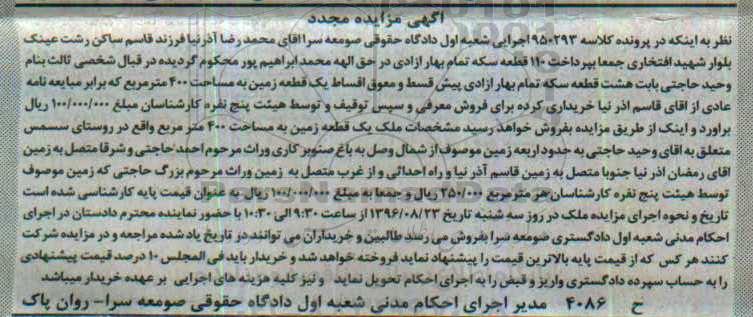 آگهی مزایده مجدد
نظر به اینکه در پرونده کلاسه ۹۵۰۲۹۳ اجرایی شعبه اول دادگاه حقوقی صومعه سرا اقای محمد رضا آذر نیا فرزند قاسم ساکن رشت عینک
بلوار شهید افتخاری جمعا بپرداخت ۱۱۰ قطعه سکه تمام بهار ازادی در حق الهه محمد ابراهیم پور محکوم گردیده در قبال شخصی ثالث بنام
وحید حاجتی بابت هشت قطعه سکه تمام بهار ازادی پیش قسط و معوق اقساط یک قطعه زمین به مساحت ۴۰۰ مترمربع که برابر مبایعه نامه
عادی از اقای قاسم اذر نیا خریداری کرده برای فروش معرفی و سپس توقیف و توسط هیئت پنج نفره کارشناسان مبلغ ۱۰۰/۰۰۰/۰۰۰ ریال
براورد و اینک از طریق مزایده بفروش خواهد رسید مشخصات ملک یک قطعه زمین به مساحت ۴۰۰ متر مربع واقع در روستای سسمس
متعلق به اقای وحید حاجتی به حدود اربعه زمین موصوف از شمال وصل به باغ صنوبر کاری وراث مرحوم احمد حاجتی و شرقا متصل به زمین
اقای رمضان اذر نیا جنوبا متصل به زمین قاسم آذر نیا و راه احداثی و از غرب متصل به زمین وراث مرحوم بزرگ حاجتی که زمین موصوف
توسط هیئت پنج نفره کارشناسان هر مترمربع ۲۵۰/۰۰۰ ریال و جمعا به مبلغ ۱۰۰/۰۰۰/۰۰۰ ریال به عنوان قیمت پایه کارشناسی شده است
تاریخ و نحوه اجرای مزایده ملک در روز سه شنبه تاریخ ۱۳۹۶/۰۸/۲۳ از ساعت ۹:۳۰ الی ۱۰:۳۰ با حضور نماینده محترم دادستان در اجرای
احکام مدنی شعبه اول دادگستری صومعه سرا بفروش می رسد طالبین و خریداران می توانند در تاریخ یاد شده مراجعه و در مزایده شرکت
کنند هر کس که از قیمت پایه بالاترین قیمت را پیشنهاد نماید فروخته خواهد شد و خریدار باید فی المجلس ۱۰ درصد قیمت پیشنهادی
را به حساب سپرده دادگستری واریز و قبض را به اجرای احکام تحویل نماید و نیز کلیه هزینه های اجرایی بر عهده خریدار میباشد
ح ۴۰۸۶ مدیر اجرای احکام مدنی شعبه اول دادگاه حقوقی صومعه سرا- روان پاک